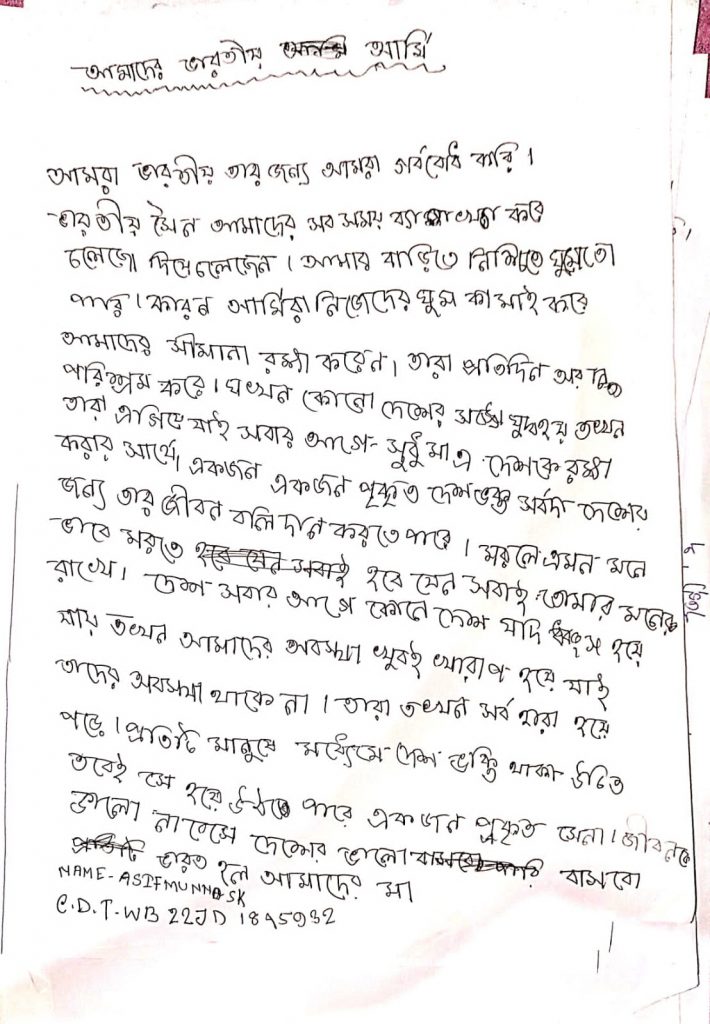 আমাদের ভারতীয় আর্মি
আমরা ভারতীয় তার জন্য আমরা গর্ববোধ করি ।
ভারতীয় সৈন আমাদের সব সময় করে
চলেছে দিয়ে চলেছেন । আমার বাড়িতে নিশ্চিন্তে ঘুমোতে
পারি । কারন আর্মিরা নিজেদের ঘুম কামাই করে
আমাদের সীমানা রক্ষা করেন । তারা প্রতিদিন
পরিশ্রম করে । যখন কোনো দেশের সঙ্গে যুদ্ধ হয় তখন
তারা এগিয়ে যাই সবার আগে - সুধু মা এ দেশকে রক্ষা
করার সার্থে, একজন একজন পৃকৃত দেশ ভক্ত সর্বদা দেশের
জন্য তার জীবন বলিদান করতে পারে । মরলে এমন মনে
ভাবে মরতে হবে যেন সবাই তোমার মনের
রাখে । দেশ সবার আগে কোনো দেশ যদি ধ্বংস হয়ে
যায় তখন আমাদের অবস্থা খুবই খারাপ হয়ে যাই
তাদের অবস্থা থাকে না । তারা তখন সর্ব হারা হয়ে
পড়ে । প্রতিটি মানুষে মধ্যেমে দেশ ভক্তি থাকা উচিত
তবেই সে হয়ে উঠতে পারে একজন পৃকৃত সেনা । জীবনকে
ভালো না বেসে দেশের ভালো বাসবো
ভারত হল আমাদের মা
NAME - ASIF MUNNA SK
C.D.T - WB 22JD 1895932